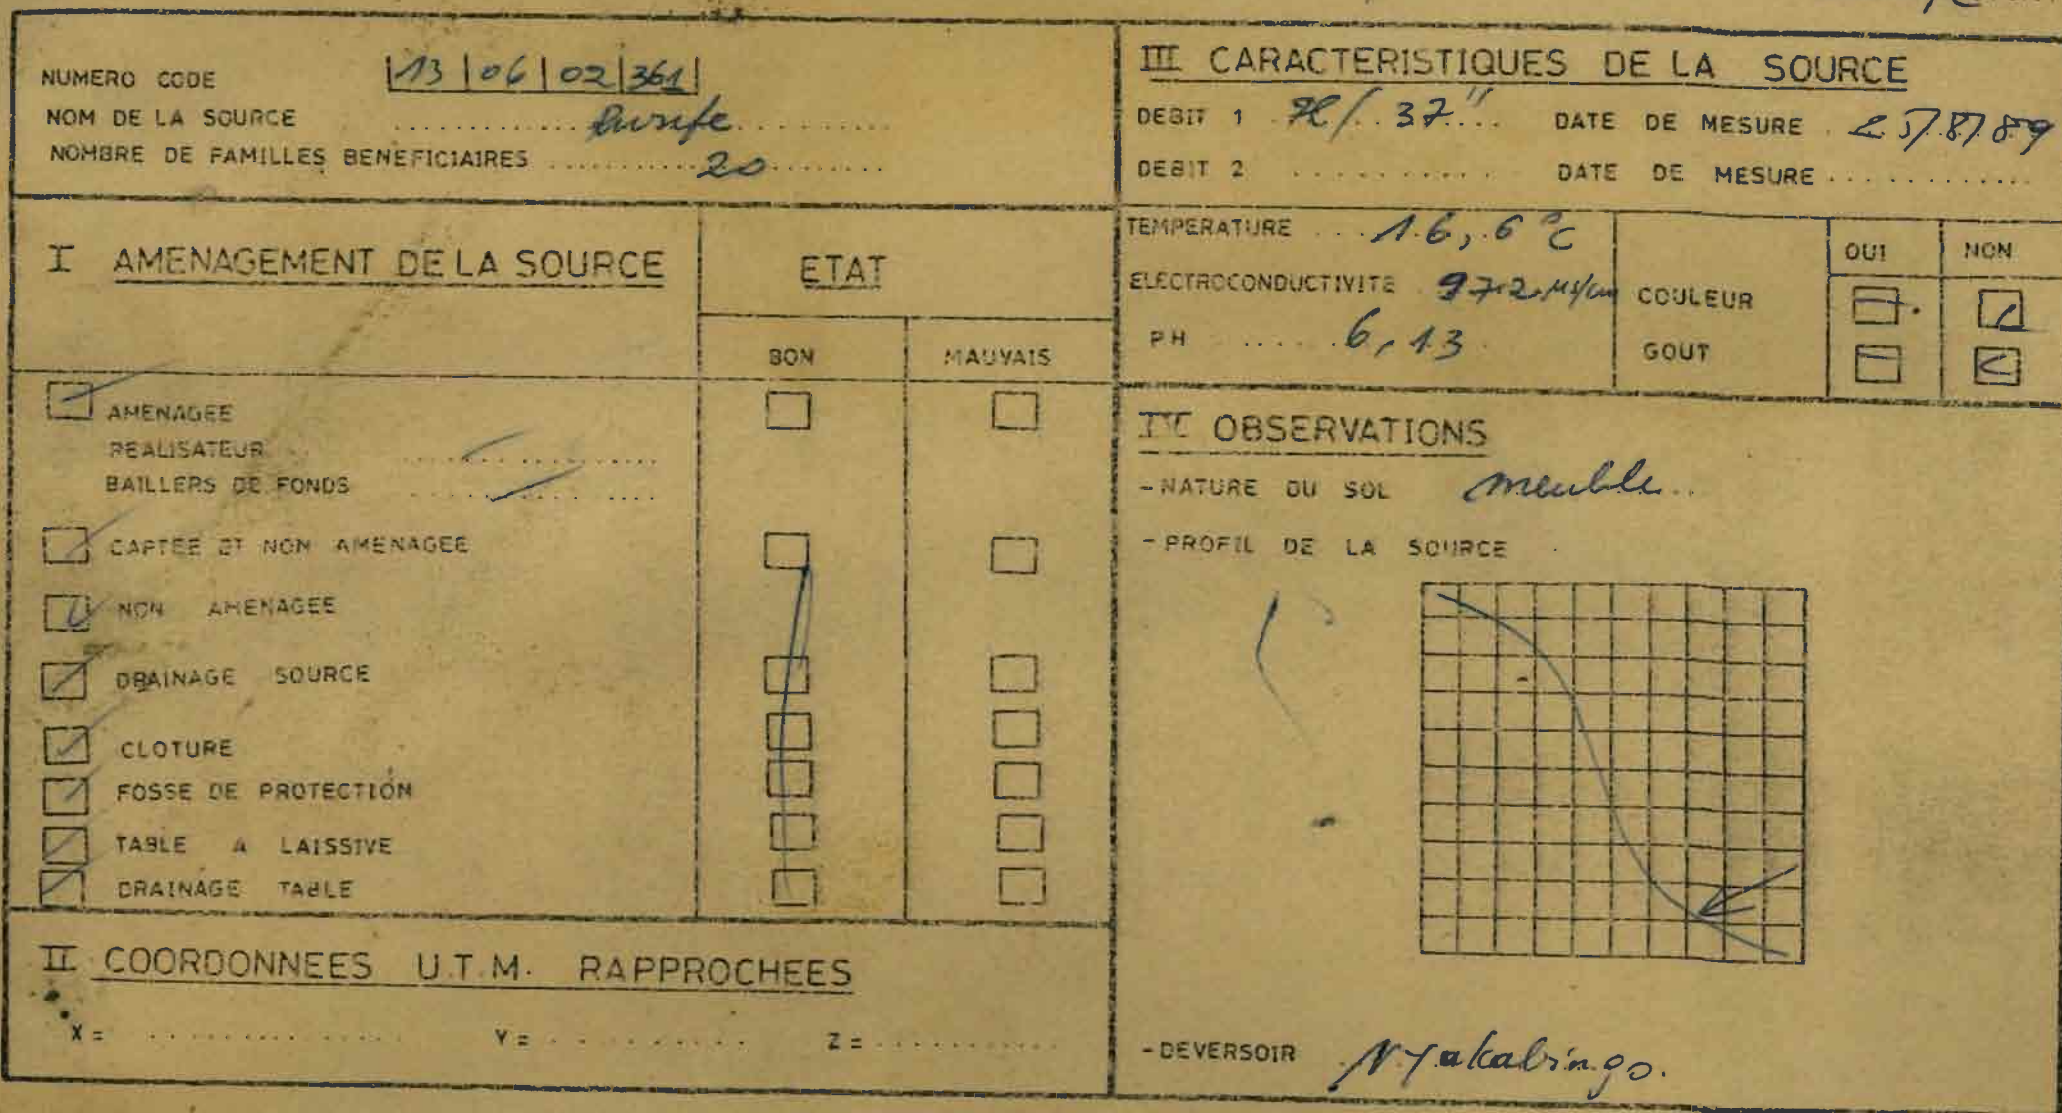 NUMERO CODE |13|06|02|361|
NOM DE LA SOURCE
NOMBRE DE FAMILLES BENEFICIAIRES 20
I AMENAGEMENT DE LA SOURCE
ETAT
BON MAUVAIS
AMENAGEE
REALISATEUR
BAILLERS DE FONDS
CAPTEE ET NON AMENAGEE
NON AMENAGEE
DRAINAGE SOURCE
CLOTURE
FOSSE DE PROTECTION
TABLE A LAISSIVE
DRAINAGE TABLE
II COORDONNEES U.T.M. RAPPROCHEES
X = Y = Z =
III CARACTERISTIQUES DE LA SOURCE
DEBIT 1 37" DATE DE MESURE 25/8/89
DEBIT 2 DATE DE MESURE
TEMPERATURE 16,6 °C
ELECTROCONDUCTIVITE 97.2 µs/cm
PH 6,13
OUI NON
COULEUR
GOUT
IV OBSERVATIONS
- NATURE DU SOL meuble
- PROFIL DE LA SOURCE
- DEVERSOIR Nyakabingo.